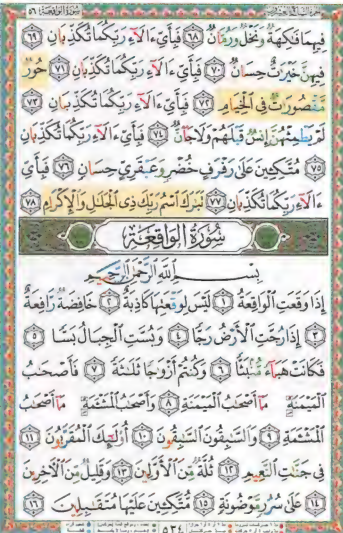 الجزء السابع والعشرون سورة الواقعة ٥٦
فِيهِمَا فَٰكِهَةٌ وَنَخْلٌ وَرُمَّانٌ ٦٨ فَبِأَيِّ ءَالَآءِ رَبِّكُمَا تُكَذِّبَانِ ٦٩
فِيهِنَّ خَيْرَٰتٌ حِسَانٌ ٧٠ فَبِأَيِّ ءَالَآءِ رَبِّكُمَا تُكَذِّبَانِ ٧١ حُورٌ
مَّقْصُورَٰتٌ فِى الْخِيَامِ ٧٢ فَبِأَيِّ ءَالَآءِ رَبِّكُمَا تُكَذِّبَانِ ٧٣
لَمْ يَطْمِثْهُنَّ إِنسٌ قَبْلَهُمْ وَلَا جَآنٌّ ٧٤ فَبِأَيِّ ءَالَآءِ رَبِّكُمَا تُكَذِّبَانِ
٧٥ مُتَّكِـِٔينَ عَلَىٰ رَفْرَفٍ خُضْرٍ وَعَبْقَرِىٍّ حِسَانٍ ٧٦ فَبِأَيِّ
ءَالَآءِ رَبِّكُمَا تُكَذِّبَانِ ٧٧ تَبَٰرَكَ اسْمُ رَبِّكَ ذِى الْجَلَٰلِ وَالْإِكْرَامِ ٧٨
سُورَةُ الْوَاقِعَةِ
بِسْمِ اللَّهِ الرَّحْمَٰنِ الرَّحِيمِ
إِذَا وَقَعَتِ الْوَاقِعَةُ ١ لَيْسَ لِوَقْعَتِهَا كَاذِبَةٌ ٢ خَافِضَةٌ رَّافِعَةٌ
٣ إِذَا رُجَّتِ الْأَرْضُ رَجًّا ٤ وَبُسَّتِ الْجِبَالُ بَسًّا ٥
فَكَانَتْ هَبَآءً مُّنۢبَثًّا ٦ وَكُنتُمْ أَزْوَٰجًا ثَلَٰثَةً ٧ فَأَصْحَٰبُ
الْمَيْمَنَةِ مَآ أَصْحَٰبُ الْمَيْمَنَةِ ٨ وَأَصْحَٰبُ الْمَشْـَٔمَةِ مَآ أَصْحَٰبُ
الْمَشْـَٔمَةِ ٩ وَالسَّٰبِقُونَ السَّٰبِقُونَ ١٠ أُو۟لَٰٓئِكَ الْمُقَرَّبُونَ ١١
فِى جَنَّٰتِ النَّعِيمِ ١٢ ثُلَّةٌ مِّنَ الْأَوَّلِينَ ١٣ وَقَلِيلٌ مِّنَ الْءَاخِرِينَ
١٤ عَلَىٰ سُرُرٍ مَّوْضُونَةٍ ١٥ مُّتَّكِـِٔينَ عَلَيْهَا مُتَقَٰبِلِينَ ١٦
٥٣٤